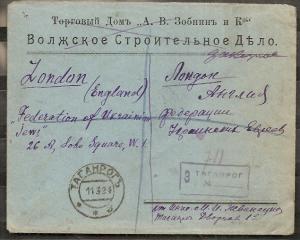 Торговый Домъ „А. В. Зобнинъ и Ко“
Волжское Строительное Дѣло.
Заказное
London
(England)
"Federation of Ukrainian
Jews"
26 A, Soho Square, W.1
Лондон
Англия
Федерации
Украинских Евреев
ТАГАНРОГЪ
З ТАГАНРОГ
№
Таганрог